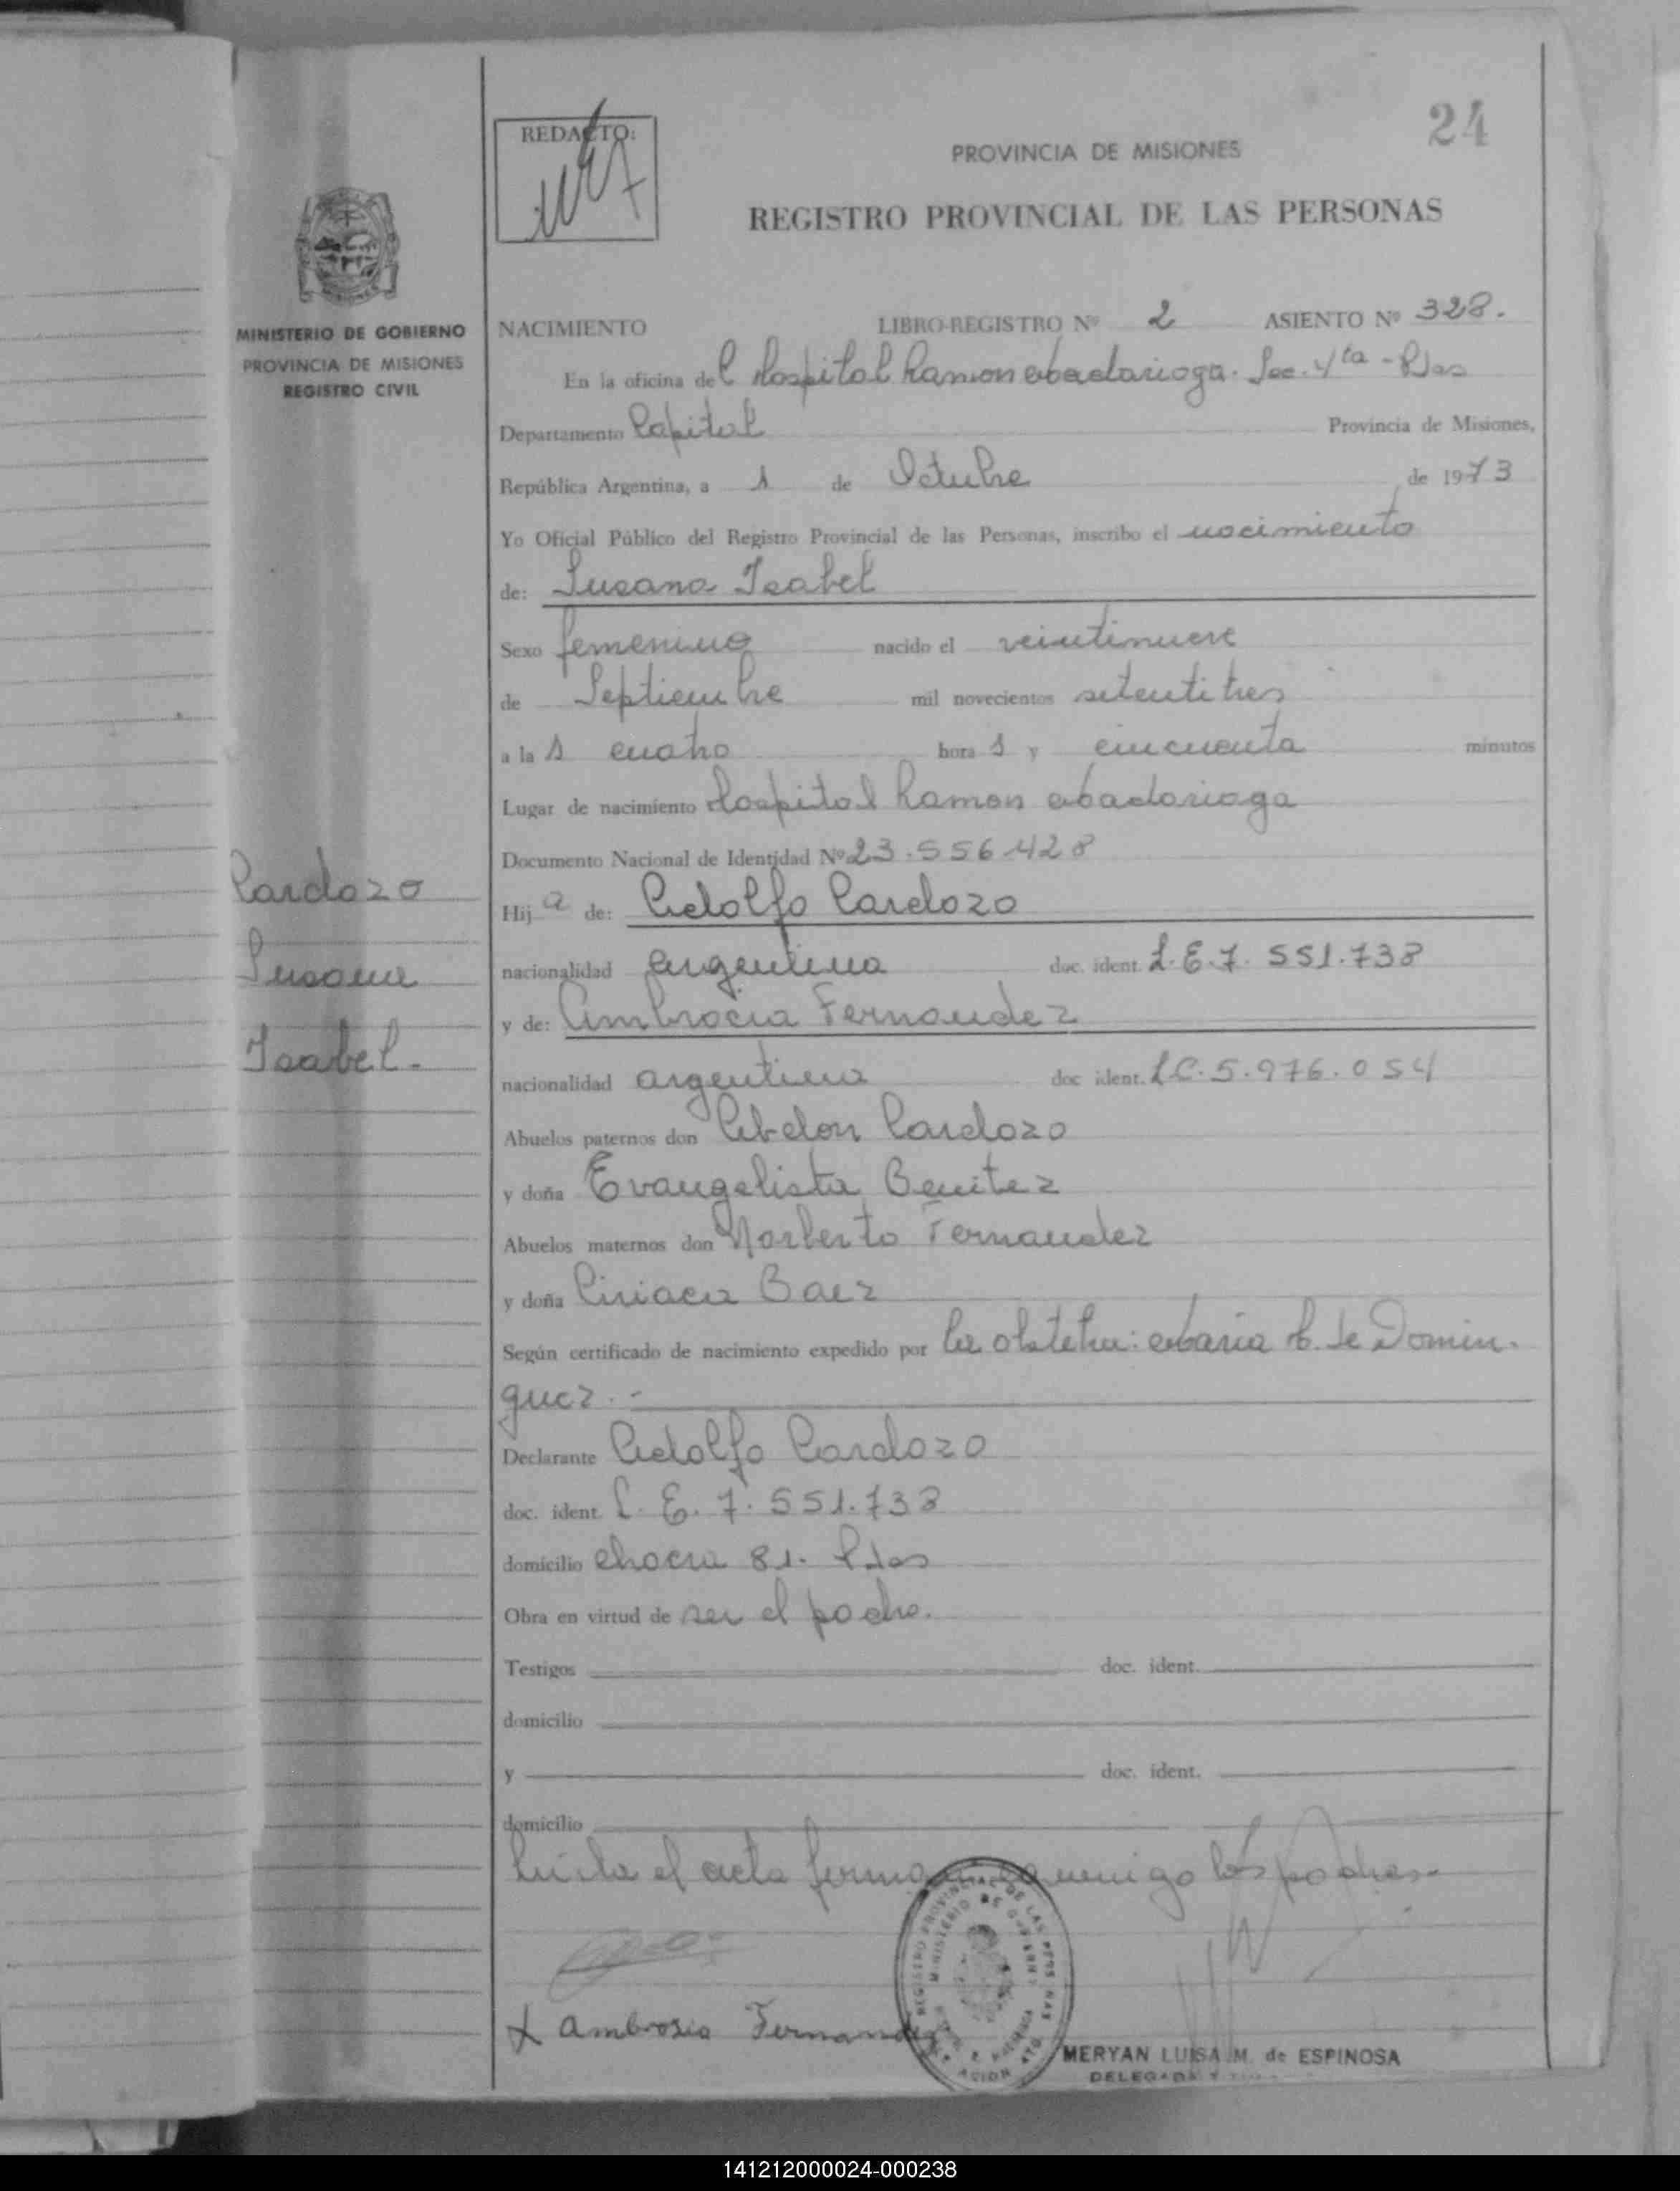 24
REDACTO:
PROVINCIA DE MISIONES
REGISTRO PROVINCIAL DE LAS PERSONAS
MINISTERIO DE GOBIERNO
PROVINCIA DE MISIONES
REGISTRO CIVIL
NACIMIENTO LIBRO-REGISTRO Nº 2 ASIENTO Nº 328.
En la oficina del Hospital Ramon Madariaga. Sec. 4ta - Pdas
Departamento Capital Provincia de Misiones,
República Argentina, a 1 de Octubre de 1973
Yo Oficial Público del Registro Provincial de las Personas, inscribo el nacimiento
de: Susana Isabel
Sexo femenino nacido el veintinueve
de Septiembre mil novecientos setentitres
a la s cuatro hora s y cincuenta minutos
Lugar de nacimiento Hospital Ramon Madariaga
Documento Nacional de Identidad Nº 23.556.428
Cardozo
Susana
Isabel.-
Hij a de: Adolfo Cardozo
nacionalidad argentina doc. ident. L.E.7.551.738
y de: Ambrocia Fernandez
nacionalidad argentina doc ident. L.C.5.976.054
Abuelos paternos don Abdon Cardozo
y doña Evangelista Benitez
Abuelos maternos don Norberto Fernandez
y doña Ciriaca Baez
Según certificado de nacimiento expedido por la obstetra: Maria de Domin-
guez.-
Declarante Adolfo Cardozo
doc. ident. L.E.7.551.738
domicilio chacra 81. Pdas
Obra en virtud de ser el padre.
Testigos doc. ident.
domicilio
y doc. ident.
domicilio
Leida el acta firman conmigo los padres.-
x Ambrosia Fernandez
REGISTRO PROVINCIAL DE LAS PERSONAS
MINISTERIO DE GOBIERNO
MERYAN LUISA M. de ESPINOSA
DELEGADA
141212000024-000238